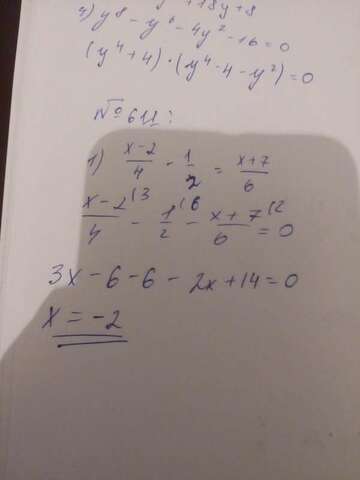 +18y+8
4) y⁸ - y⁶ - 4y² - 16 = 0
(y⁴+4)·(y⁴-4-y²)=0
№611:
1) (x-2)/4 - 1/2 = (x+7)/6
(x-2)/4 ⁽³ - 1/2 ⁽⁶ - (x+7)/6 ⁽² = 0
3x - 6 - 6 - 2x + 14 = 0
x = -2